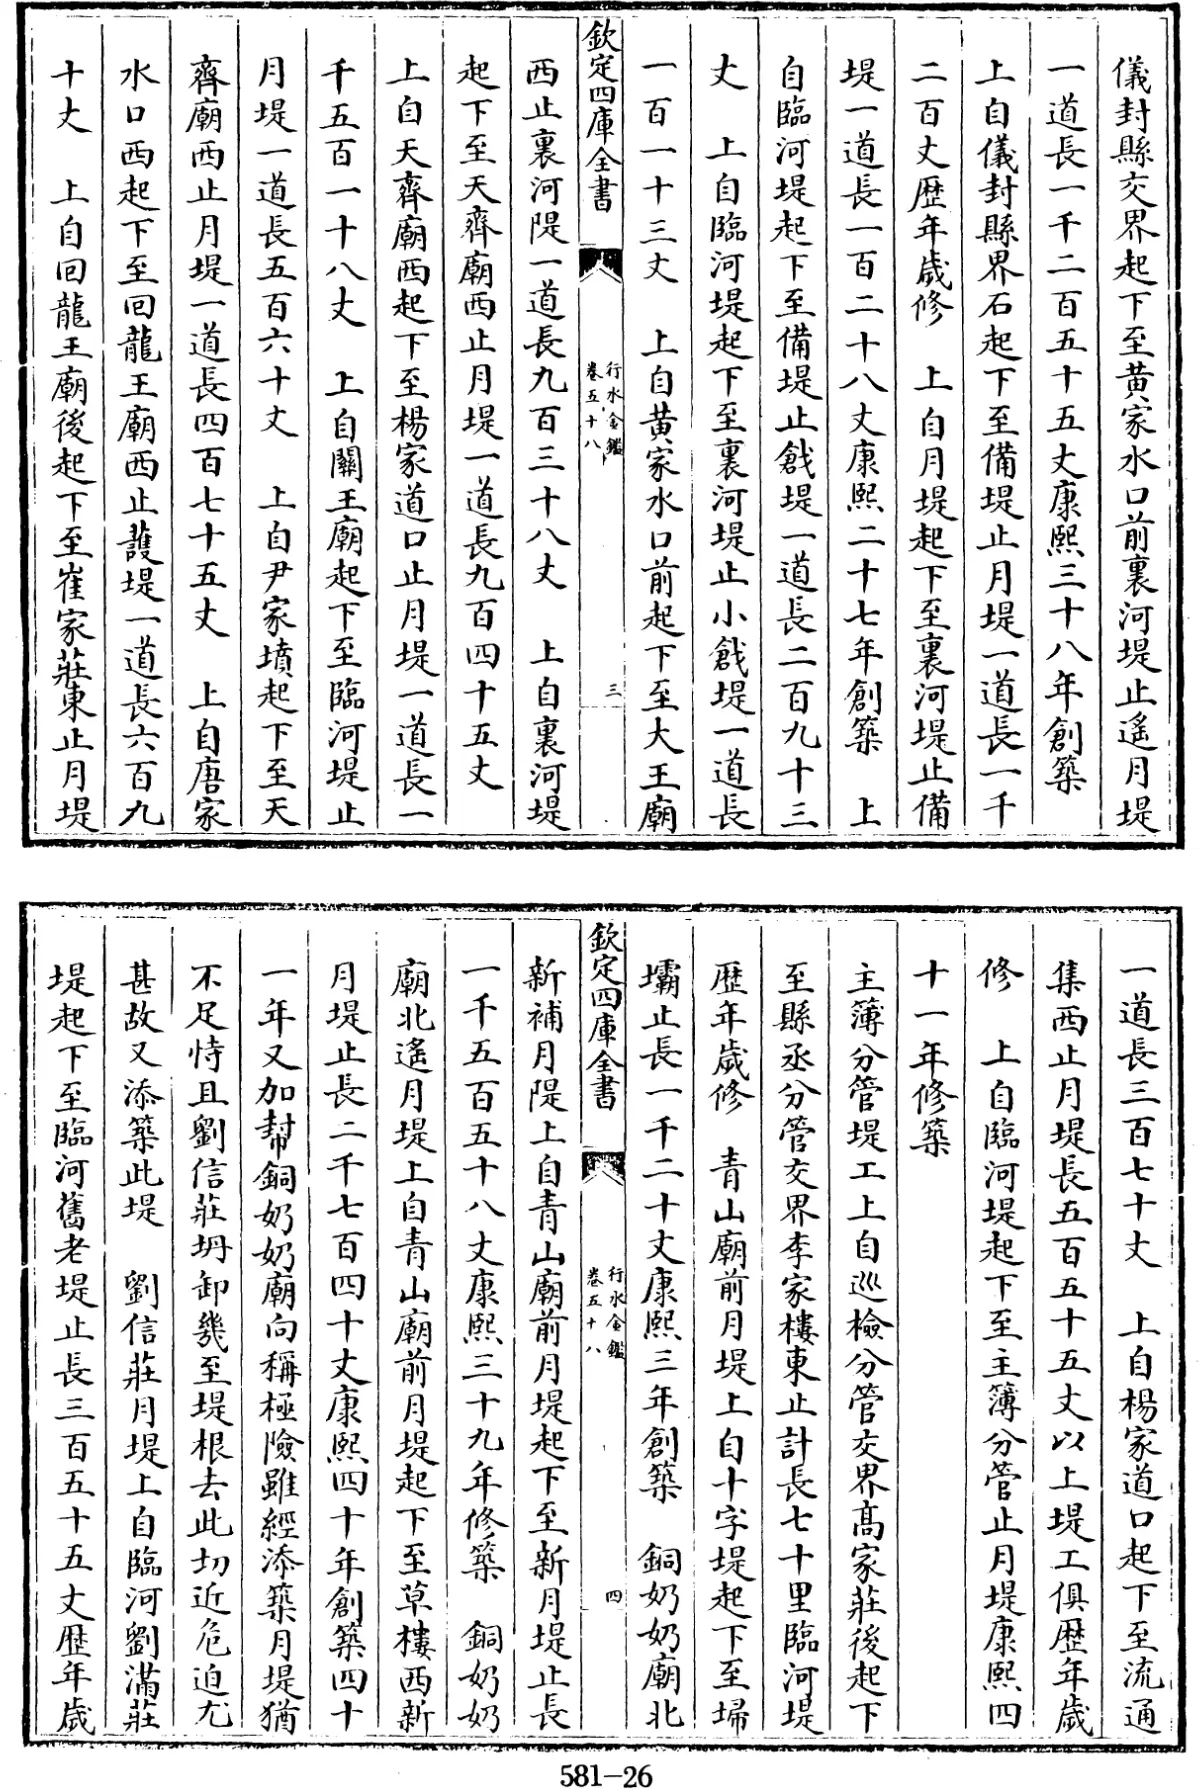 儀封縣交界起下至黄家水口前裏河堤止遙月堤
一道長一千二百五十五丈康熙三十八年創築
上自儀封縣界石起下至備堤止月堤一道長一千
二百丈歴年歲修　上自月堤起下至裏河堤止備
堤一道長一百二十八丈康熙二十七年創築　上
自臨河堤起下至備堤止戧堤一道長二百九十三
丈　上自臨河堤起下至裏河堤止小戧堤一道長
一百一十三丈　上自黄家水口前起下至大王廟
欽定四庫全書
行水金鑑
卷五十八
三
西止裏河隄一道長九百三十八丈　上自裏河堤
起下至天齊廟西止月堤一道長九百四十五丈
上自天齊廟西起下至楊家道口止月堤一道長一
千五百一十八丈　上自關王廟起下至臨河堤止
月堤一道長五百六十丈　上自尹家墳起下至天
齊廟西止月堤一道長四百七十五丈　上自唐家
水口西起下至回龍王廟西止護堤一道長六百九
十丈　上自回龍王廟後起下至崔家莊東止月堤
一道長三百七十丈　上自楊家道口起下至流通
集西止月堤長五百五十五丈以上堤工俱歴年歲
修　上自臨河堤起下至主簿分管止月堤康熙四
十一年修築
主簿分管堤工上自巡檢分管交界高家莊後起下
至縣丞分管交界李家樓東止計長七十里臨河堤
歴年歲修　青山廟前月堤上自十字堤起下至埽
壩止長一千二十丈康熙三年創築　銅奶奶廟北
欽定四庫全書
行水金鑑
卷五十八
四
新補月隄上自青山廟前月堤起下至新月堤止長
一千五百五十八丈康熙三十九年修築　銅奶奶
廟北遙月堤上自青山廟前月堤起下至草樓西新
月堤止長二千七百四十丈康熙四十年創築四十
一年又加幇銅奶奶廟向稱極險雖經添築月堤猶
不足恃且劉信莊坍卸幾至堤根去此切近危迫尤
甚故又添築此堤　劉信莊月堤上自臨河劉滿莊
堤起下至臨河舊老堤止長三百五十五丈歴年歲
581-26